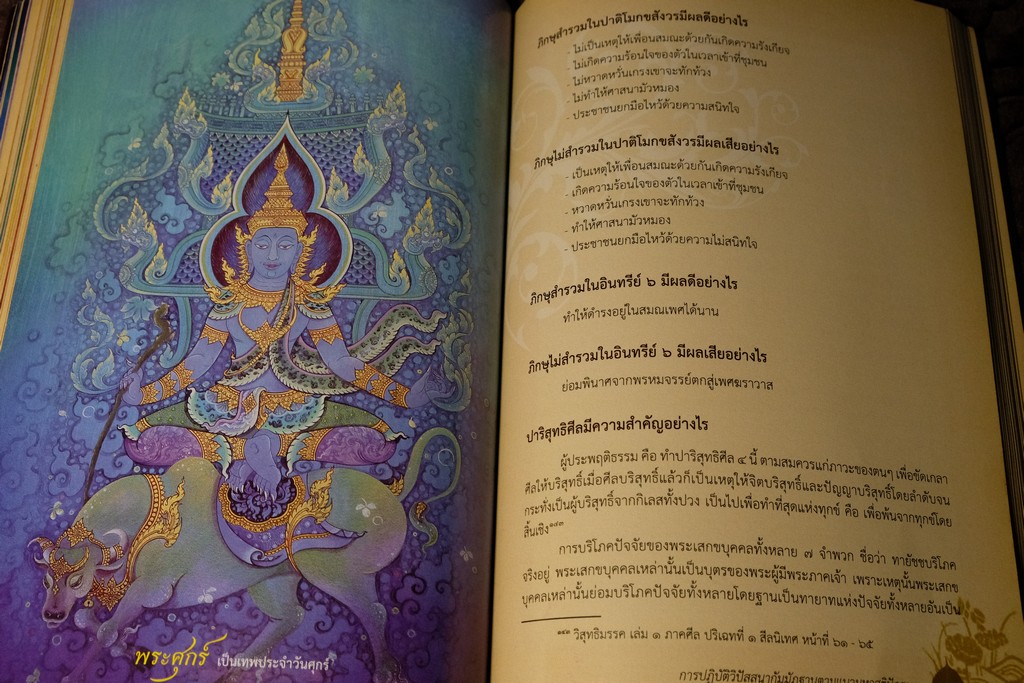 พระศุกร์ เป็นเทพประจำวันศุกร์
ภิกษุสำรวมในปาติโมกขสังวรมีผลดีอย่างไร
- ไม่เป็นเหตุให้เพื่อนสมณะด้วยกันเกิดความรังเกียจ
- ไม่เกิดความร้อนใจของตัวในเวลาเข้าที่ชุมชน
- ไม่หวาดหวั่นเกรงเขาจะทักท้วง
- ไม่ทำให้ศาสนามัวหมอง
- ประชาชนยกมือไหว้ด้วยความสนิทใจ
ภิกษุไม่สำรวมในปาติโมกขสังวรมีผลเสียอย่างไร
- เป็นเหตุให้เพื่อนสมณะด้วยกันเกิดความรังเกียจ
- เกิดความร้อนใจของตัวในเวลาเข้าที่ชุมชน
- หวาดหวั่นเกรงเขาจะทักท้วง
- ทำให้ศาสนามัวหมอง
- ประชาชนยกมือไหว้ด้วยความไม่สนิทใจ
ภิกษุสำรวมในอินทรีย์ ๖ มีผลดีอย่างไร
ทำให้ดำรงอยู่ในสมณเพศได้นาน
ภิกษุไม่สำรวมในอินทรีย์ ๖ มีผลเสียอย่างไร
ย่อมพินาศจากพรหมจรรย์ตกสู่เพศฆราวาส
ปาริสุทธิศีลมีความสำคัญอย่างไร
ผู้ประพฤติธรรม คือ ทำปาริสุทธิศีล ๔ นี้ ตามสมควรแก่ภาวะของตนๆ เพื่อขัดเกลา
ศีลให้บริสุทธิ์เมื่อศีลบริสุทธิ์แล้วก็เป็นเหตุให้จิตบริสุทธิ์และปัญญาบริสุทธิ์โดยลำดับจน
กระทั่งเป็นผู้บริสุทธิ์จากกิเลสทั้งปวง เป็นไปเพื่อทำที่สุดแห่งทุกข์ คือ เพื่อพ้นจากทุกข์โดย
สิ้นเชิง๑๔๓
การบริโภคปัจจัยของพระเสกขบุคคลทั้งหลาย ๗ จำพวก ชื่อว่า ทายัชชบริโภค
จริงอยู่ พระเสกขบุคคลเหล่านั้นเป็นบุตรของพระผู้มีพระภาคเจ้า เพราะเหตุนั้นพระเสกข
บุคคลเหล่านั้นย่อมบริโภคปัจจัยทั้งหลายโดยฐานเป็นทายาทแห่งปัจจัยทั้งหลายอันเป็น
๑๔๓ วิสุทธิมรรค เล่ม ๑ ภาคศีล ปริเฉทที่ ๑ สีลนิเทศ หน้าที่ ๖๑ - ๖๕
การปฏิบัติวิปัสสนากัมมัฏฐานตามแนว